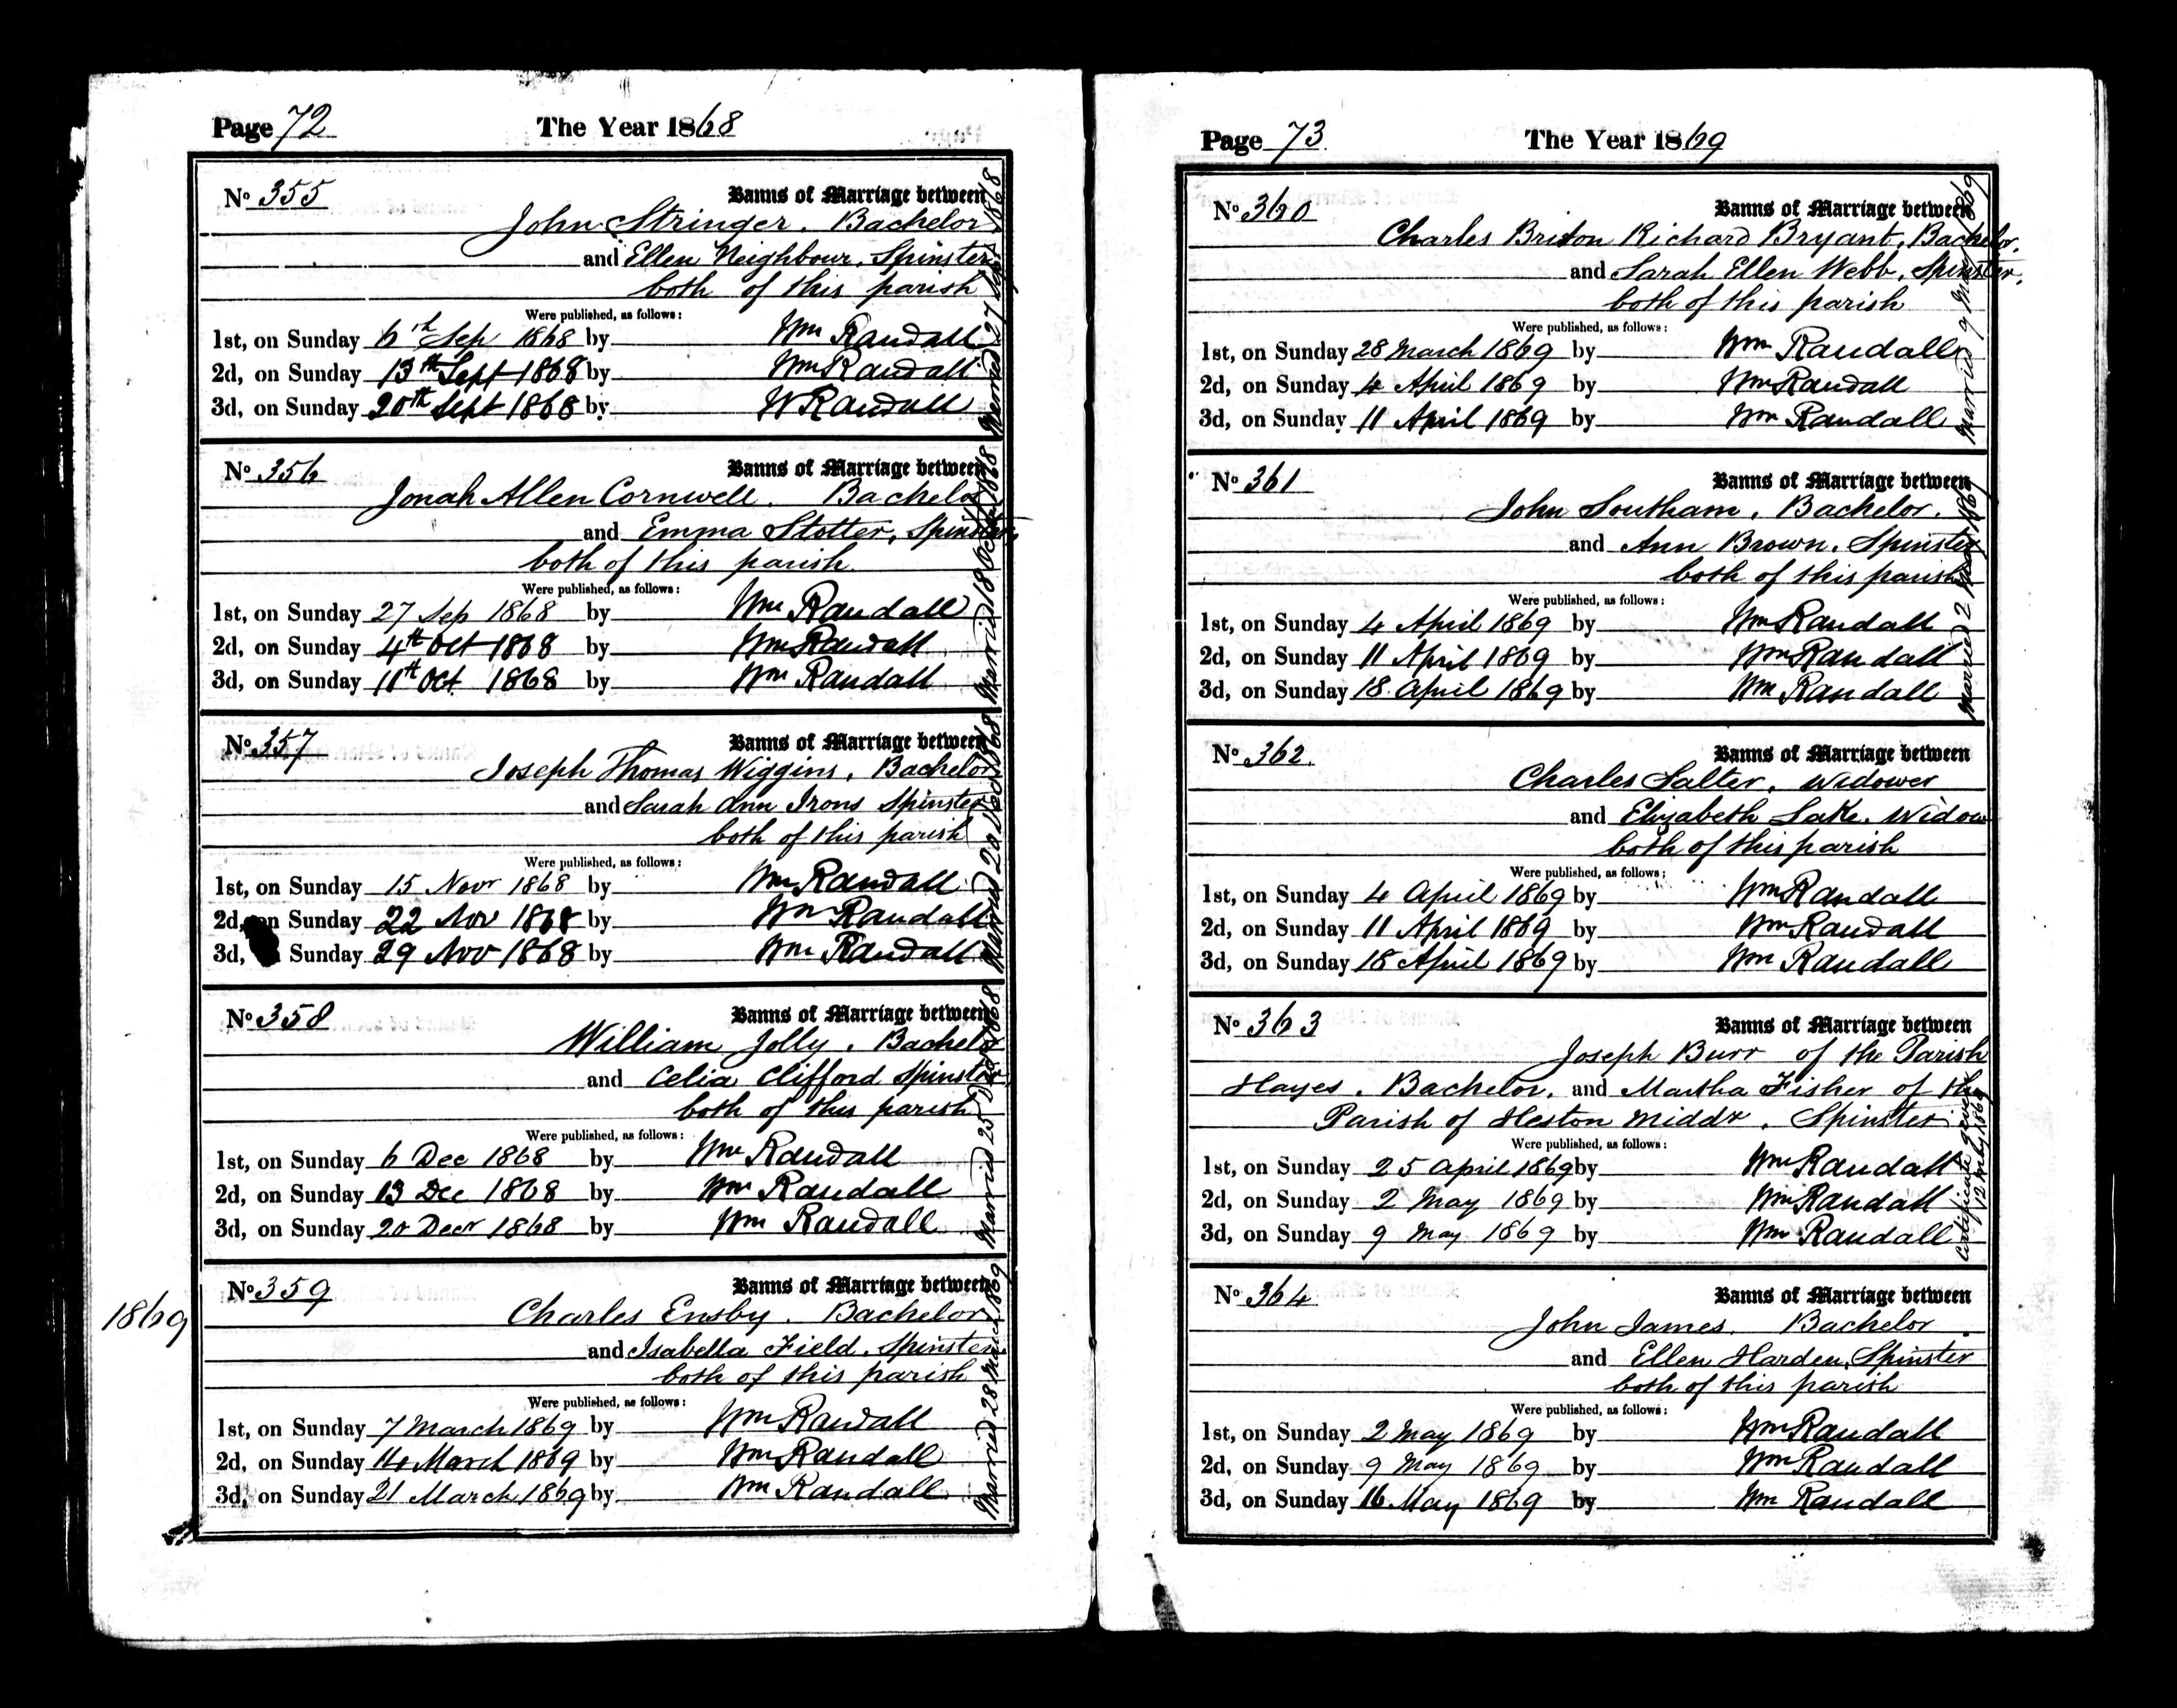 Page 72 The Year 1868
No 355 Banns of Marriage between
John Stringer. Bachelor
and Ellen Neighbour, Spinster
both of this parish
Were published, as follows:
1st, on Sunday 6th Sep 1868 by Wm Randall
2d, on Sunday 13th Sept 1868 by Wm Randall
3d, on Sunday 20th Sept 1868 by W Randall
Married 27 Sept 1868
No 356 Banns of Marriage between
Jonah Allen Cornwell. Bachelor
and Emma Stotter, Spinster
both of this parish
Were published, as follows:
1st, on Sunday 27 Sep 1868 by Wm Randall
2d, on Sunday 4th Oct 1868 by Wm Randall
3d, on Sunday 11th Oct 1868 by Wm Randall
Married 18 Oct 1868
No 357 Banns of Marriage between
Joseph Thomas Wiggins, Bachelor
and Sarah Ann Irons Spinster
both of this parish
Were published, as follows:
1st, on Sunday 15 Novr 1868 by Wm Randall
2d, on Sunday 22 Nov 1868 by Wm Randall
3d, Sunday 29 Nov 1868 by Wm Randall
Married 1868
No 358 Banns of Marriage between
William Jolly. Bachelor
and Celia Clifford Spinster
both of this parish
Were published, as follows:
1st, on Sunday 6 Dec 1868 by Wm Randall
2d, on Sunday 13 Dec 1868 by Wm Randall
3d, on Sunday 20 Decr 1868 by Wm Randall
Married 25 Dec 1868
1869
No 359 Banns of Marriage between
Charles Ensby. Bachelor
and Isabella Field. Spinster
both of this parish
Were published, as follows:
1st, on Sunday 7 March 1869 by Wm Randall
2d, on Sunday 14 March 1869 by Wm Randall
3d, on Sunday 21 March 1869 by Wm Randall
Married 28 March 1869
Page 73 The Year 1869
No 360 Banns of Marriage between
Charles Briton Richard Bryant, Bachelor.
and Sarah Ellen Webb, Spinster.
both of this parish
Were published, as follows:
1st, on Sunday 28 March 1869 by Wm Randall
2d, on Sunday 4 April 1869 by Wm Randall
3d, on Sunday 11 April 1869 by Wm Randall
Married 9 May 1869
No 361 Banns of Marriage between
John Southam. Bachelor.
and Ann Brown. Spinster
both of this parish
Were published, as follows:
1st, on Sunday 4 April 1869 by Wm Randall
2d, on Sunday 11 April 1869 by Wm Randall
3d, on Sunday 18 April 1869 by Wm Randall
Married 2 May 1869
No 362. Banns of Marriage between
Charles Salter. Widower
and Elizabeth Lake. Widow
both of this parish
Were published, as follows:
1st, on Sunday 4 April 1869 by Wm Randall
2d, on Sunday 11 April 1869 by Wm Randall
3d, on Sunday 18 April 1869 by Wm Randall
No 363 Banns of Marriage between
Joseph Burr of the Parish
Hayes. Bachelor. and Martha Fisher of the
Parish of Heston Middx. Spinster
Were published, as follows:
1st, on Sunday 25 April 1869 by Wm Randall
2d, on Sunday 2 May 1869 by Wm Randall
3d, on Sunday 9 May 1869 by Wm Randall
Certificate given
12 May 1869
No 364 Banns of Marriage between
John James. Bachelor.
and Ellen Harden, Spinster
both of this parish
Were published, as follows:
1st, on Sunday 2 May 1869 by Wm Randall
2d, on Sunday 9 May 1869 by Wm Randall
3d, on Sunday 16 May 1869 by Wm Randall